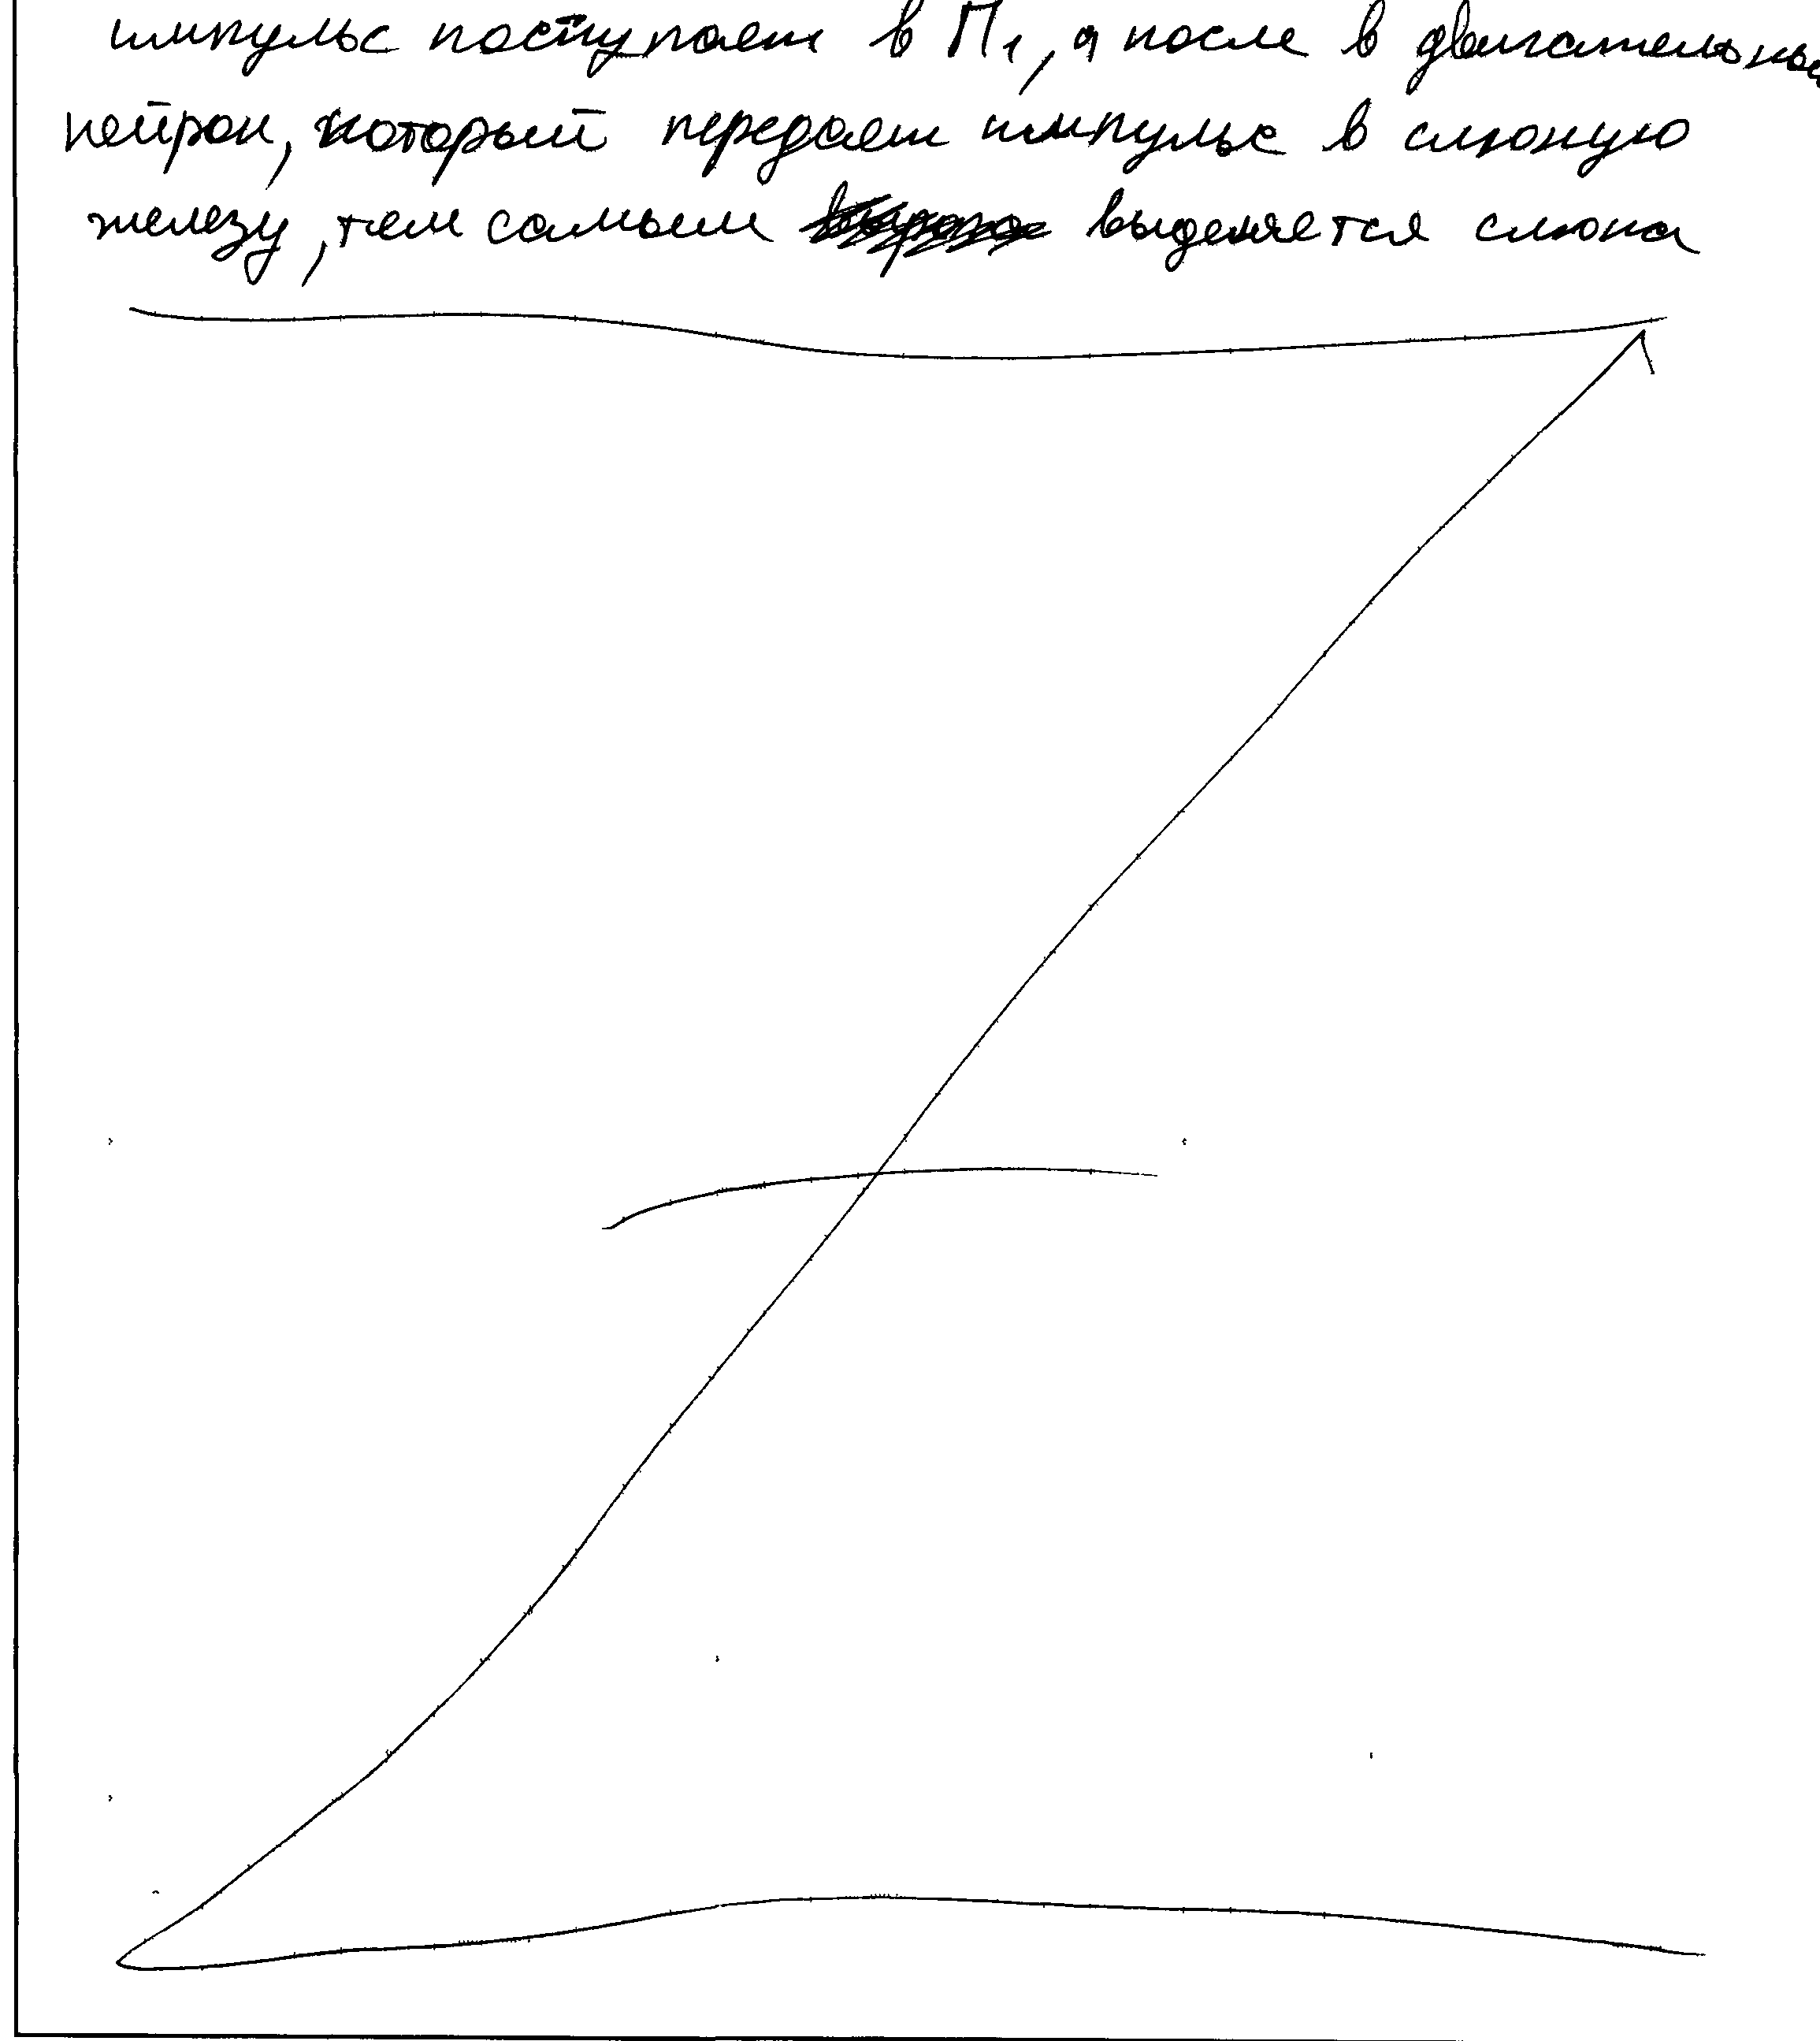 импульс поступает в П₁, а после в двигательный
нейрон, который передаёт импульс в слюную
железу, тем самым выделяется слюна